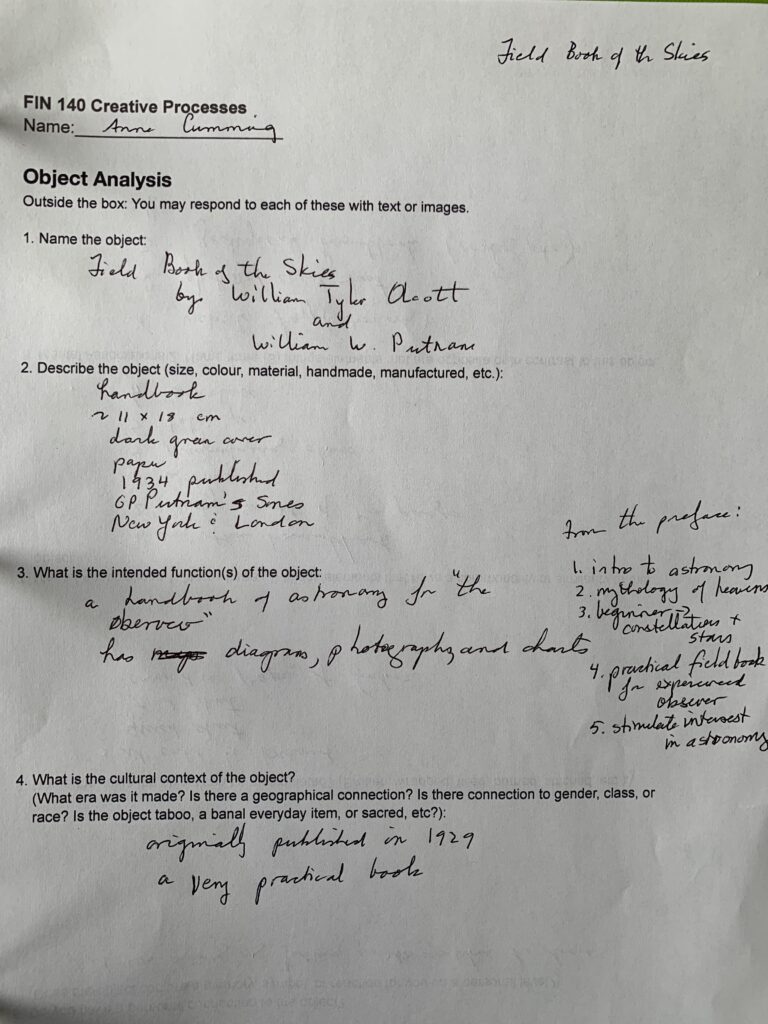 Field Book of the Skies
FIN 140 Creative Processes
Name: Anne Cumming
Object Analysis
Outside the box: You may respond to each of these with text or images.
1. Name the object:
Field Book of the Skies
by William Tyler Olcott
and
William W. Putnam
2. Describe the object (size, colour, material, handmade, manufactured, etc.):
handbook
~ 11 x 18 cm
dark green cover
paper
1934 published
GP Putnam's Sones
New York & London
3. What is the intended function(s) of the object:
a handbook of astronomy for "the
oberver"
has diagrams, photography, and charts
from the preface:
1. intro to astronomy
2. mythology of heavens
3. beginner →
constellations +
stars
4. practical field book
for experienced
observer
5. stimulate interest
in astronomy
4. What is the cultural context of the object?
(What era was it made? Is there a geographical connection? Is there connection to gender, class, or
race? Is the object taboo, a banal everyday item, or sacred, etc?):
originally published in 1929
a very practical book